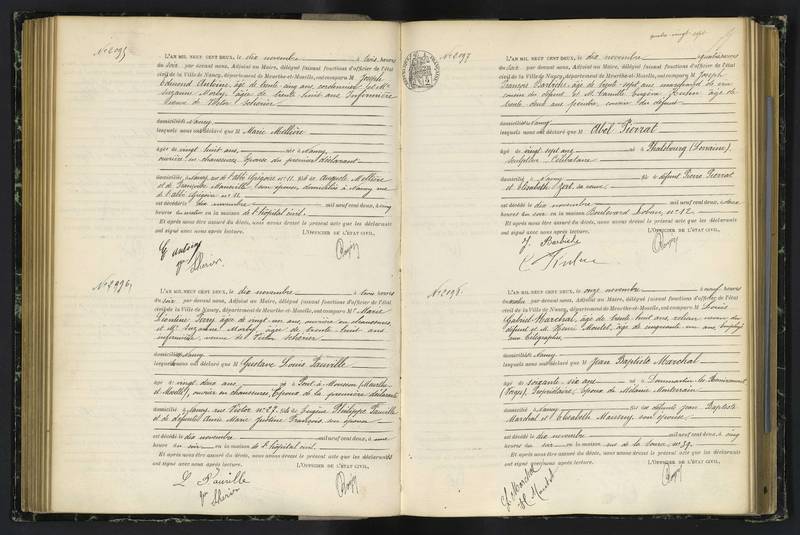 No 2095
L'AN MIL NEUF CENT DEUX, le dix novembre à trois heures
du soir par devant nous, Adjoint au Maire, délégué faisant fonctions d'officier de l'état
civil de la Ville de Nancy, département de Meurthe-et-Moselle, ont comparu M Joseph
Edmond Antoine, âgé de trente cinq ans, cordonnier et Me
Suzanne Morby, âgée de trente huit ans infirmière
veuve de Victor Scherier
domiciliés à Nancy
lesquels nous ont déclaré que M Marie Mellière
âgée de vingt huit ans, née à Nancy,
ouvrière en chaussures, épouse du premier déclarant
domiciliée à Nancy, rue de l'abbé Grégoire no 11 fille de Auguste Mellière
et de Françoise son épouse, domiciliés à Nancy rue
de l'abbé Grégoire no 11
est décédée dix novembre mil neuf cent deux, à cinq
heures du matin en la maison de l'hôpital civil.
Et après nous être assuré du décès, nous avons dressé le présent acte que les déclarants
ont signé avec nous après lecture. L'OFFICIER DE L'ÉTAT CIVIL,
E antoine
No 2096
L'AN MIL NEUF CENT DEUX, le dix novembre à trois heures
du soir par devant nous, Adjoint au Maire, délégué faisant fonctions d'officier de l'état
civil de la Ville de Nancy, département de Meurthe-et-Moselle, ont comparu Me Marie
Léontine âgée de vingt un ans, ouvrière en chaussures
et Me Suzanne Morby, âgée de trente huit ans
infirmière, veuve de Victor Scherier
domiciliés à Nancy
lesquels nous ont déclaré que M Gustave Louis Pauville
âgé de vingt deux ans né à Pont-à-Mousson (Meurthe
et Moselle), ouvrier en chaussures, époux de la première déclarante
domicilié à Nancy, rue Victor no 27, fils de Eugène Philippe Pauville
et de défunte Anne Marie Justine François, son épouse
est décédé dix novembre mil neuf cent deux, à une
heure du soir en la maison de l'hôpital civil.
Et après nous être assuré du décès, nous avons dressé le présent acte que les déclarants
ont signé avec nous après lecture. L'OFFICIER DE L'ÉTAT CIVIL,
L Pauville
quatre-vingt-sept
No 2097
L'AN MIL NEUF CENT DEUX, le dix novembre à quatre heures
du soir par devant nous, Adjoint au Maire, délégué faisant fonctions d'officier de l'état
civil de la Ville de Nancy, département de Meurthe-et-Moselle, ont comparu M Joseph
François âgé de trente sept ans, marchand de vin
cousin du défunt et M. Camille Eugène âgé de
trente deux ans peintre, cousin du défunt
domiciliés à Nancy
lesquels nous ont déclaré que M Abel Pierrat
âgé de vingt sept ans né à Phalsbourg (Lorraine),
sculpteur Célibataire
domicilié à Nancy fils de défunt Pierre Pierrat
et Elisabeth sa veuve
est décédé dix novembre mil neuf cent deux, à deux
heures du soir en la maison Boulevard Lobau, no 12
Et après nous être assuré du décès, nous avons dressé le présent acte que les déclarants
ont signé avec nous après lecture. L'OFFICIER DE L'ÉTAT CIVIL,
No 2098
L'AN MIL NEUF CENT DEUX, le onze novembre à neuf heures
du matin par devant nous, Adjoint au Maire, délégué faisant fonctions d'officier de l'état
civil de la Ville de Nancy, département de Meurthe-et-Moselle, ont comparu M Louis
Gabriel Marchal, âgé de trente huit ans, neveu du
défunt et M. Henri Moutet, âgé de cinquante un ans, employé
aux télégraphes
domiciliés à Nancy
lesquels nous ont déclaré que M Jean Baptiste Marchal
âgé de soixante six ans né à Dommartin-les-Remiremont
(Vosges), Propriétaire, époux de Mélanie
domicilié à Nancy fils de défunts Jean Baptiste
Marchal et Elisabeth son épouse
est décédé dix novembre mil neuf cent deux, à cinq
heures du soir en la maison rue de la Source no 39
Et après nous être assuré du décès, nous avons dressé le présent acte que les déclarants
ont signé avec nous après lecture. L'OFFICIER DE L'ÉTAT CIVIL,